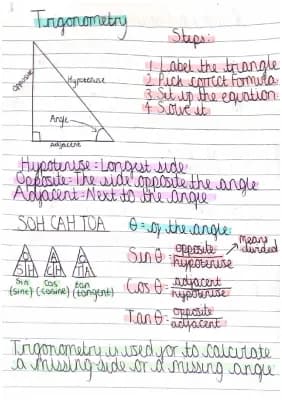 Trigonometry
Steps:
1 Label the triangle
2 Pick correct formula
3 Set up the equation
4 Solve it
opposite
Hypotenuse
Angle
adjacent
Hypotenuse = Longest side
Opposite = The side opposite the angle
Adjacent = Next to the angle
SOH CAH TOA
θ = of the angle
O
S H
A
C H
O
T A
Sin (sine)
Cos (cosine)
tan (tangent)
Means divided
Sin θ = opposite
hypotenuse
Cos θ = adjacent
hypotenuse
Tan θ = opposite
adjacent
Trigonometry is used for to calculate
a missing side or a missing angle